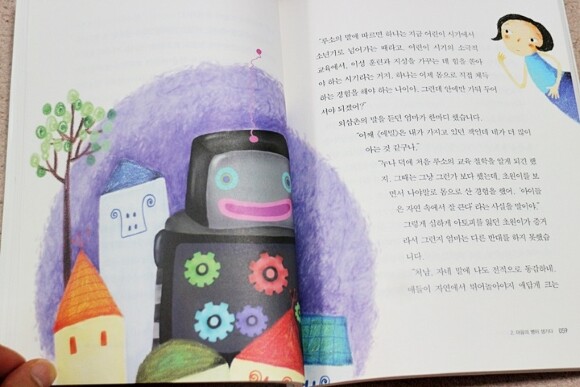 "루소의 말에 따르면 하나는 지금 어린이 시기에서
소년기로 넘어가는 때라고. 어린이 시기의 소극적
교육에서, 이성 훈련과 지성을 가꾸는 데 힘을 쏟아
야 하는 시기라는 거지. 하나는 이제 몸으로 직접 체득
하는 경험을 해야 하는 나이야. 그런데 안에만 가둬 두어
서야 되겠어?"
외삼촌의 말을 듣던 엄마가 한마디 했습니다.
"이제 《에밀》은 내가 가지고 있던 책인데 네가 더 많이
아는 것 같구나."
"누나 덕에 처음 루소의 교육 철학을 알게 되긴 했
지. 그때는 그냥 그런가 보다 했는데, 초원이를 보
면서 나야말로 몸으로 산 경험을 했어. '아이들
은 자연 속에서 잘 큰다'라는 사실을 말이야."
그렇게 심하게 아토피를 앓던 초원이가 증거
라서 그런지 엄마는 다른 반대를 하지 못했습
니다.
"처남, 자네 말에 나도 전적으로 동감하네.
애들이 자연에서 뛰어놀아야지 에답게 크는
2. 마음의 병이 생기다 059